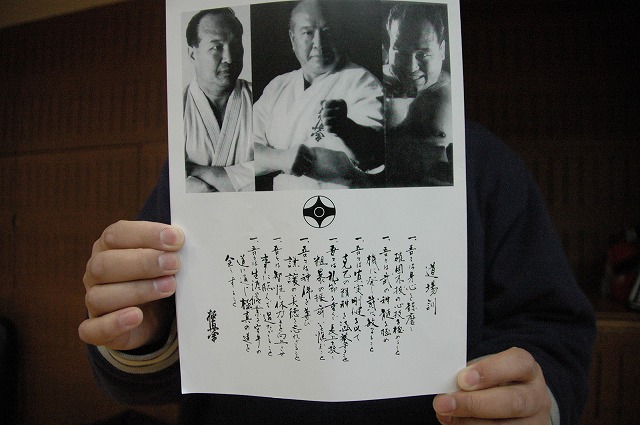 道場訓
一、吾々は心身を錬磨し
確固不抜の心技を極めること
一、吾々は武の神髄を極め
機に発し感に敏なること
一、吾々は質実剛健を以て
克己の精神を涵養すること
一、吾々は礼節を重んじ長上を敬し
粗暴の振舞いを慎むこと
一、吾々は神仏を尊び
謙譲の美徳を忘れざること
一、吾々は知性と体力とを向上させ
事に臨んで過たざること
一、吾々は生涯の修行を空手の
道に通じ極真の道を
全うすること
極真会